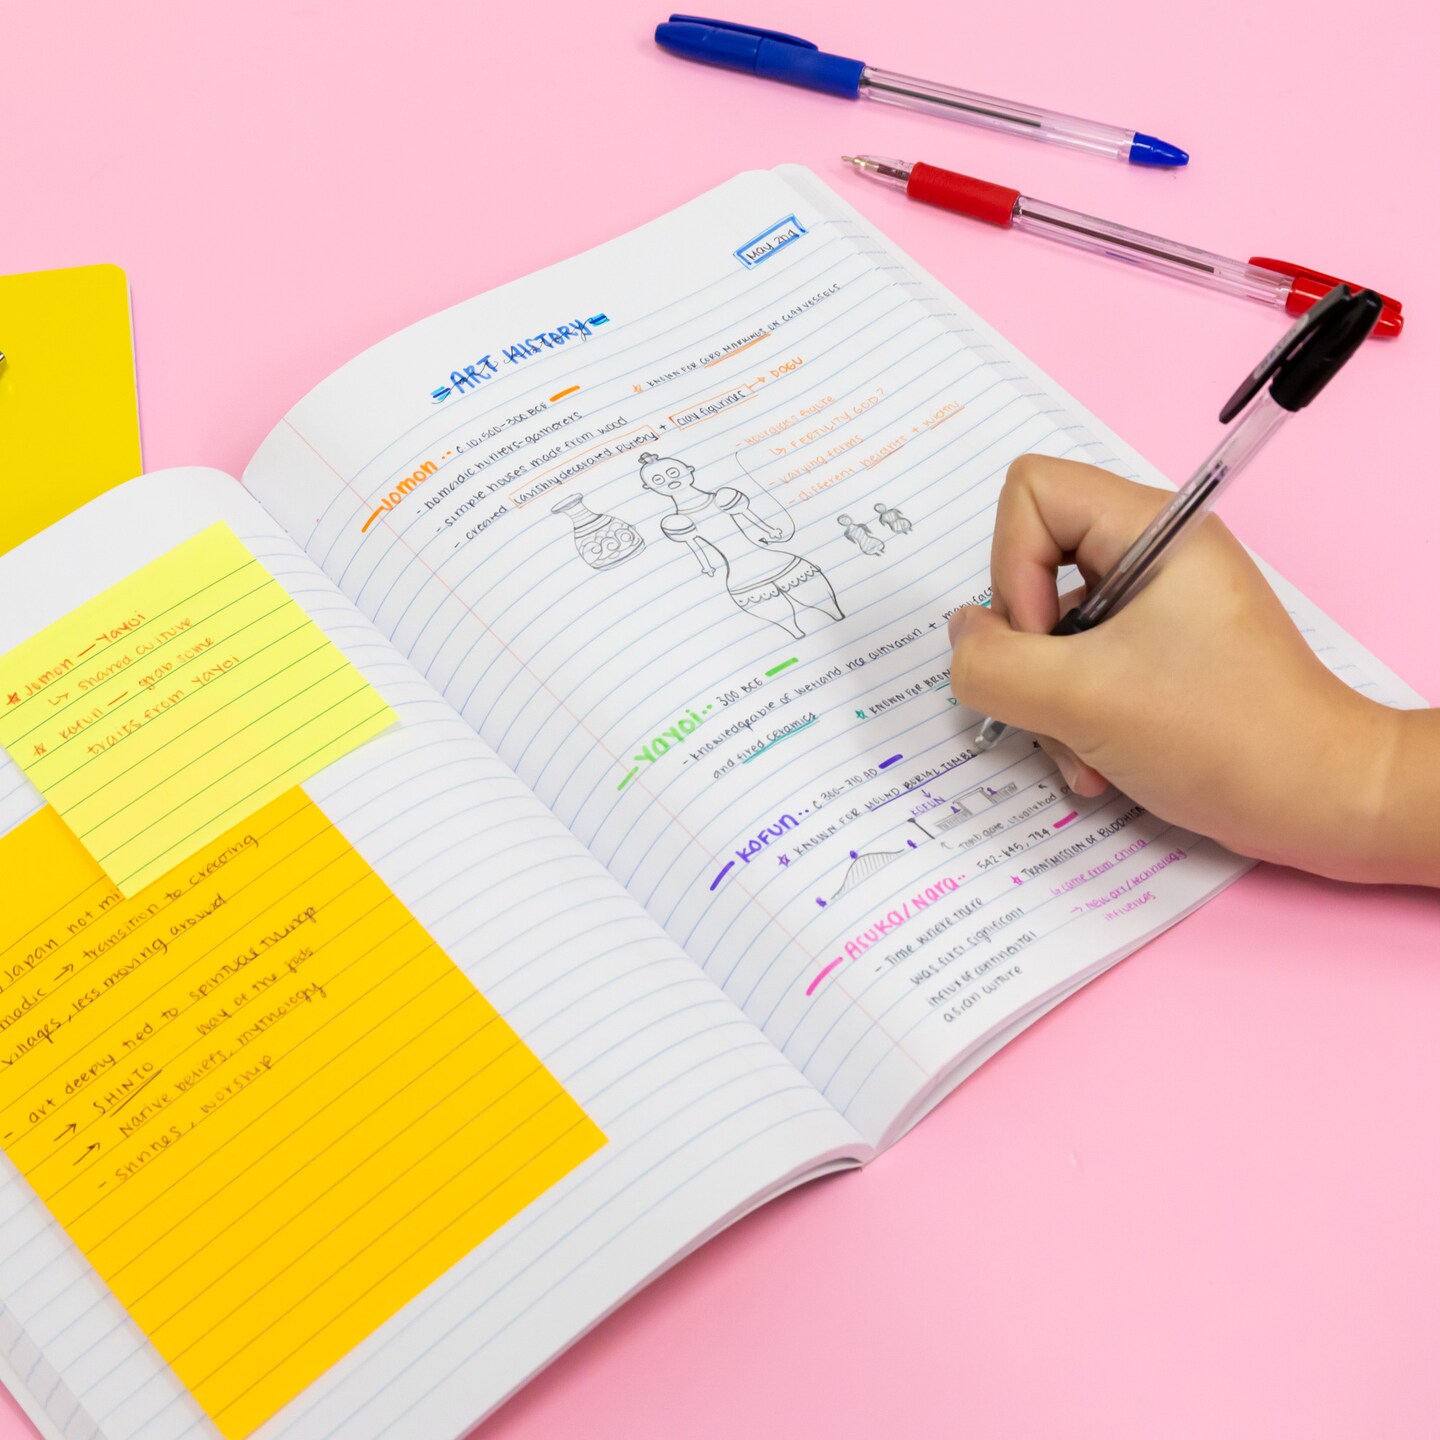 * Jomon — Yayoi
↳ shared culture
* Kofun — grab some
traits from Yayoi
Japan not mi
madic → transition to creating
villages, less moving around
- art deeply tied to spiritual
→ SHINTO way of the gods
→ Native beliefs, mythology
- shrines, worship
May 2nd
=ART HISTORY=
Jomon·· C 10,500-300 BCE
* KNOWN FOR CORD MARKINGS ON CLAY VESSELS
- nomadic hunters-gatherers
- simple houses made from wood
- created lavishly decorated pottery + clay figurines → DOGU
- hourglass figure
↳ FERTILITY GOD?
- varying forms
- different heights +
Yayoi·· 300 BCE
- knowledgeable of wetland rice cultivation + manufact
and fired ceramics
* KNOWN FOR BRON
KOFUN·· C 300-710 AD
* KNOWN FOR MOUND BURIAL TOMBS
KOFUN
Tomb gate, usually had
Asuka/Nara·· 542-645, 784
* TRANSMISSION OF BUDDHISM
↳ came from China
→ New art/technology
influences
- Time where there
was first significant
influx of continental
asian culture